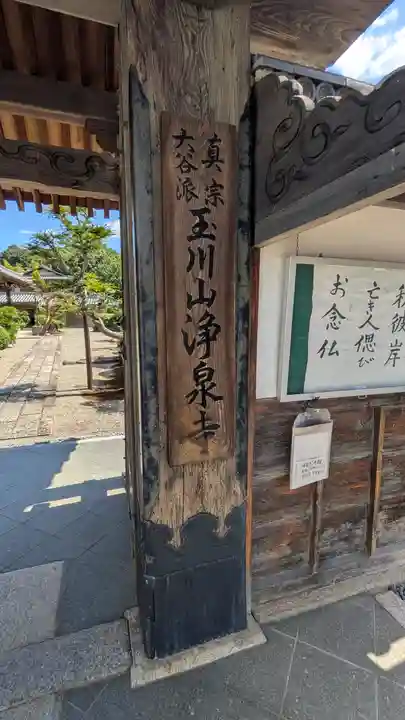 真宗
大谷派
玉川山浄泉寺
秋彼岸
亡き人偲び
お念仏